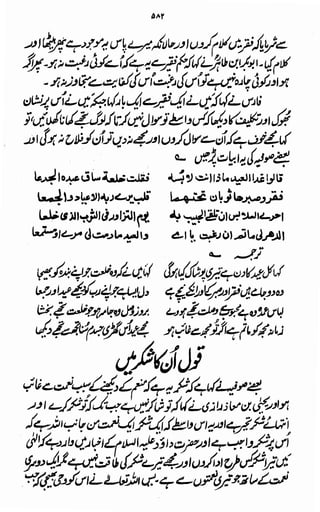 ۵۸۲
سے شرمایا کہ فقر میں کلام کروں اور حالانکہ میرے پاس یہ موجود ہے پھر بیٹھا اور
کلام کیا۔ ابوبکر ابن طاہر نے کہا کہ حکم فقیر کے یہ ہے کہ اُسے کوئی رغبت نہ ہو۔ پھر اگر
ہو اور کوئی چارہ نہیں ہے تو اُس کی رغبت اُس کی کفایت سے متجاوز نہ ہو۔
فارس نے کہا کہ میں نے ایک فقیر سے ایک بار کہا جبکہ میں نے اس پر نشان
بھوک اور تکلیف کا دیکھا کس واسطے تو سوال نہیں کرتا کہ لوگ تجھے کھانا کھلائیں تو
کہا مجھے خوف ہے کہ اُن سے سوال کروں اور مجھے نہ دیں تو اُن کو فلاح نہ ہوگی اور
بعضے صوفیہ کی یہ ابیات پڑھیں
قالوا غدا العید ماذا انت لابسه
فقلت خلعة ساق عبده الجرعا
فقر وصبرهما ثوبان تحتهما
قلب یرى ربه الاعیاد والجمعا
احرى الملابس ان تلقى الحبیب به
یوم التزاور فی الثوب الذی خلعا
الدهر لی ماتم ان غبت یا املی
والعید مادمت لی مرءا ومستمعا
ترجمہ
کہا کل عید کا دن ہے تیری پوشاک کیا ہوگی
دو جامے ہیں فقر اور صبر کا اور انکے نیچے ہے
زمانہ مجھ کو ماتم ہے اگر تو مجھ سے غائب ہو
قول اُن کا شکر میں
بعضے صوفیہ نے کہا ہے کہ شکر یہ ہے کہ منعم کے دیکھنے کے سبب نعمت سے غائب
ہو اور یحییٰ بن معاذ رازی نے کہا کہ تو شاکر نہیں ہے جب تک کہ تو شکر کرے اور
انتہائے شکر تحیر ہے اور یہ اس واسطے کہ شکر ایک نعمت من جانب اللہ ہے کہ
اُس پر شکر واجب ہے اور حضرت داؤد علیہ السلام کے اخبار میں وارد ہے کہ الٰہی
میں تیرا شکر کس طرح ادا کروں اور مجھے تیرے شکر کی طاقت نہیں ہے مگر ایک دوسری
نعمت کے ساتھ جو تیری نعمتوں سے ہے پس اللہ تعالٰے نے اس کو وحی بھیجی کہ جب